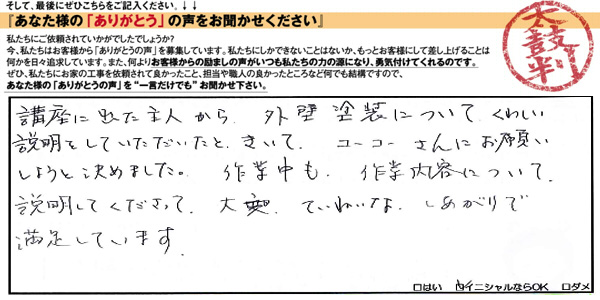 そして、最後にぜひこちらをご記入ください。↓↓
『あなた様の「ありがとう」の声をお聞かせください』
私たちにご依頼されていかがでしたでしょうか?
今、私たちはお客様から「ありがとうの声」を募集しています。私たちにしかできないことはないか、もっとお客様にして差し上げることは
何かを日々追求しています。また、何よりお客様からの励ましの声がいつも私たちの力の源になり、勇気付けてくれるのです。
ぜひ、私たちにお家の工事を依頼されて良かったこと、担当や職人の良かったところなど何でも結構ですので、
あなた様の「ありがとうの声」を"一言だけでも"お聞かせ下さい。
太鼓判
講座に出た主人から、外壁塗装について、くわしい
説明をしていただいたと、きいて、コーコーさんにお願い
しようと決めました。作業中も、作業内容について、
説明してくださって、大変、ていねいな、しあがりで
満足しています。
□はい 内イニシャルならOK □ダメ